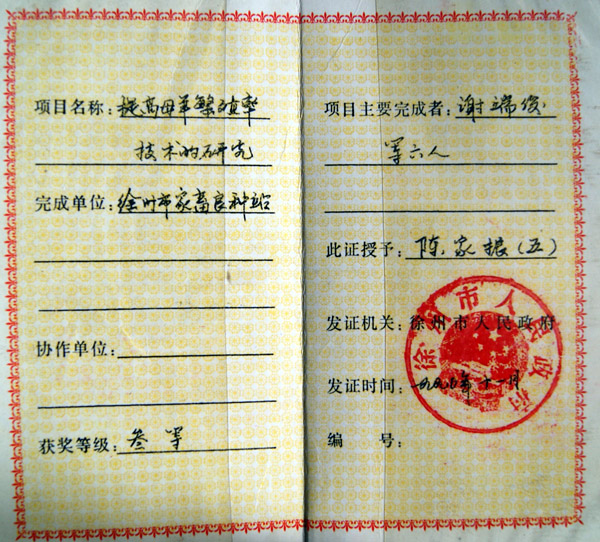 项目名称：提高母羊繁殖率
技术的研究
完成单位：徐州市家畜良种站
协作单位：
获奖等级：叁等
项目主要完成者：谢瑞俊
等六人
此证授予：陈家振（五）
发证机关：徐州市人民政府
发证时间：一九九〇年十一月
编 号：
徐州市人民政府